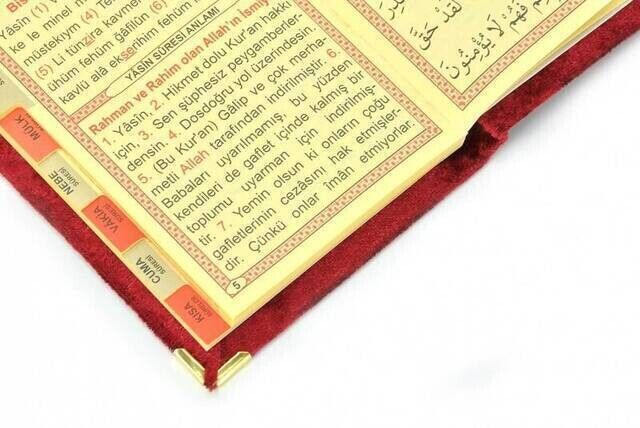 Yâsîn (1)
ke le minel
müstekıym (4)
(5) Li tünzira kavmen
ühüm fehüm gâfilûn (6)
kavlü alâ ekserihim fehüm
YASİN SÛRESİ ANLAMI
Rahman ve Rahim olan Allah'ın İsmiy
1. Yâsîn, 2. Hikmet dolu Kur'an hakkı
için, 3. Sen şüphesiz peygamberler-
densin. 4. Dosdoğru yol üzerindesin.
5. (Bu Kur'an) Gâlip ve çok merha-
metli Allah tarafından indirilmiştir. 6.
Babaları uyarılmamış, bu yüzden
kendileri de gaflet içinde kalmış bir
toplumu uyarman için indirilmiş-
tir. 7. Yemin olsun ki onların çoğu
gafletlerinin cezâsını hak etmişler-
dir. Çünkü onlar îmân etmiyorlar.
5
لَقَدْ حَقَّ
فَهُمْ لَا يُؤْمِنُونَ
MÜLK
NEBE
SÛRESİ
VÂKIA
SÛRESİ
CUMA
SÛRESİ
KISA
SÛRELER